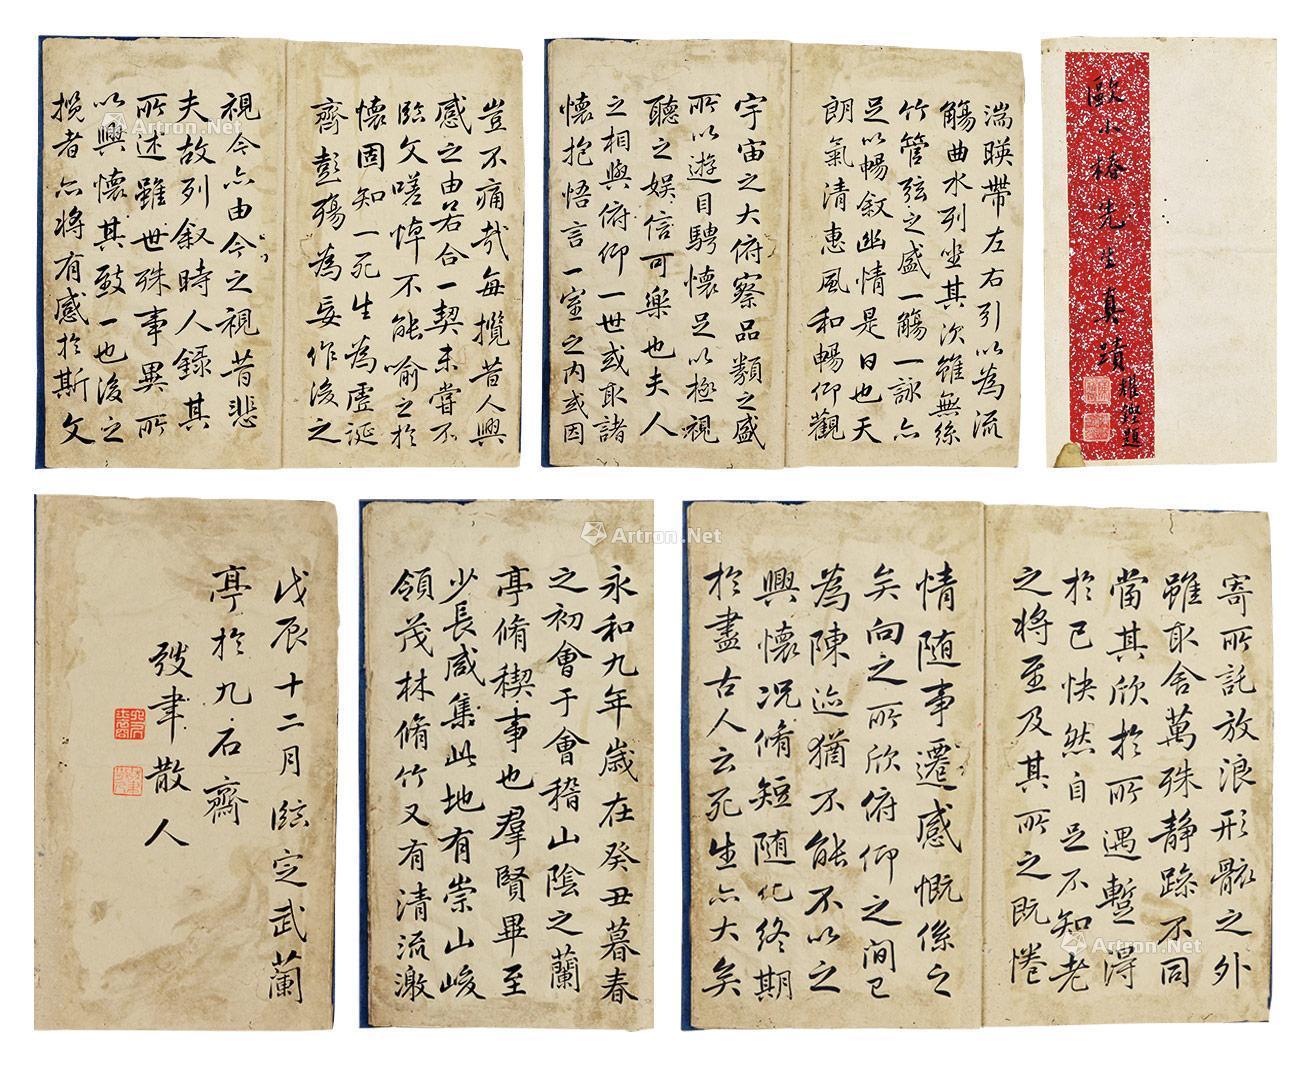 歐小椿先生真蹟
題
永和九年歲在癸丑暮春
之初會于會稽山陰之蘭
亭脩稧事也羣賢畢至
少長咸集此地有崇山峻
領茂林脩竹又有清流激
湍暎帶左右引以為流
觴曲水列坐其次雖無絲
竹管弦之盛一觴一詠亦
足以暢敘幽情是日也天
朗氣清惠風和暢仰觀
宇宙之大俯察品類之盛
所以遊目騁懷足以極視
聽之娛信可樂也夫人
之相與俯仰一世或取諸
懷抱悟言一室之內或因
寄所託放浪形骸之外
雖取舍萬殊静躁不同
當其欣於所遇蹔得
於己快然自足不知老
之將至及其所之既惓
情隨事遷感慨係之
矣向之所欣俯仰之間已
為陳迹猶不能不以之
興懷況脩短隨化終期
於盡古人云死生亦大矣
豈不痛哉每攬昔人興
感之由若合一契未嘗不
臨文嗟悼不能喻之於
懷固知一死生為虛誕
齊彭殤為妄作後之
視今亦由今之視昔悲
夫故列敘時人錄其
所述雖世殊事異所
以興懷其致一也後之
攬者亦將有感於斯文
戊辰十二月臨定武蘭
亭於九石齋
弢聿散人
Artron.Net
Artron.Net
Artron.Net
Artron.Net